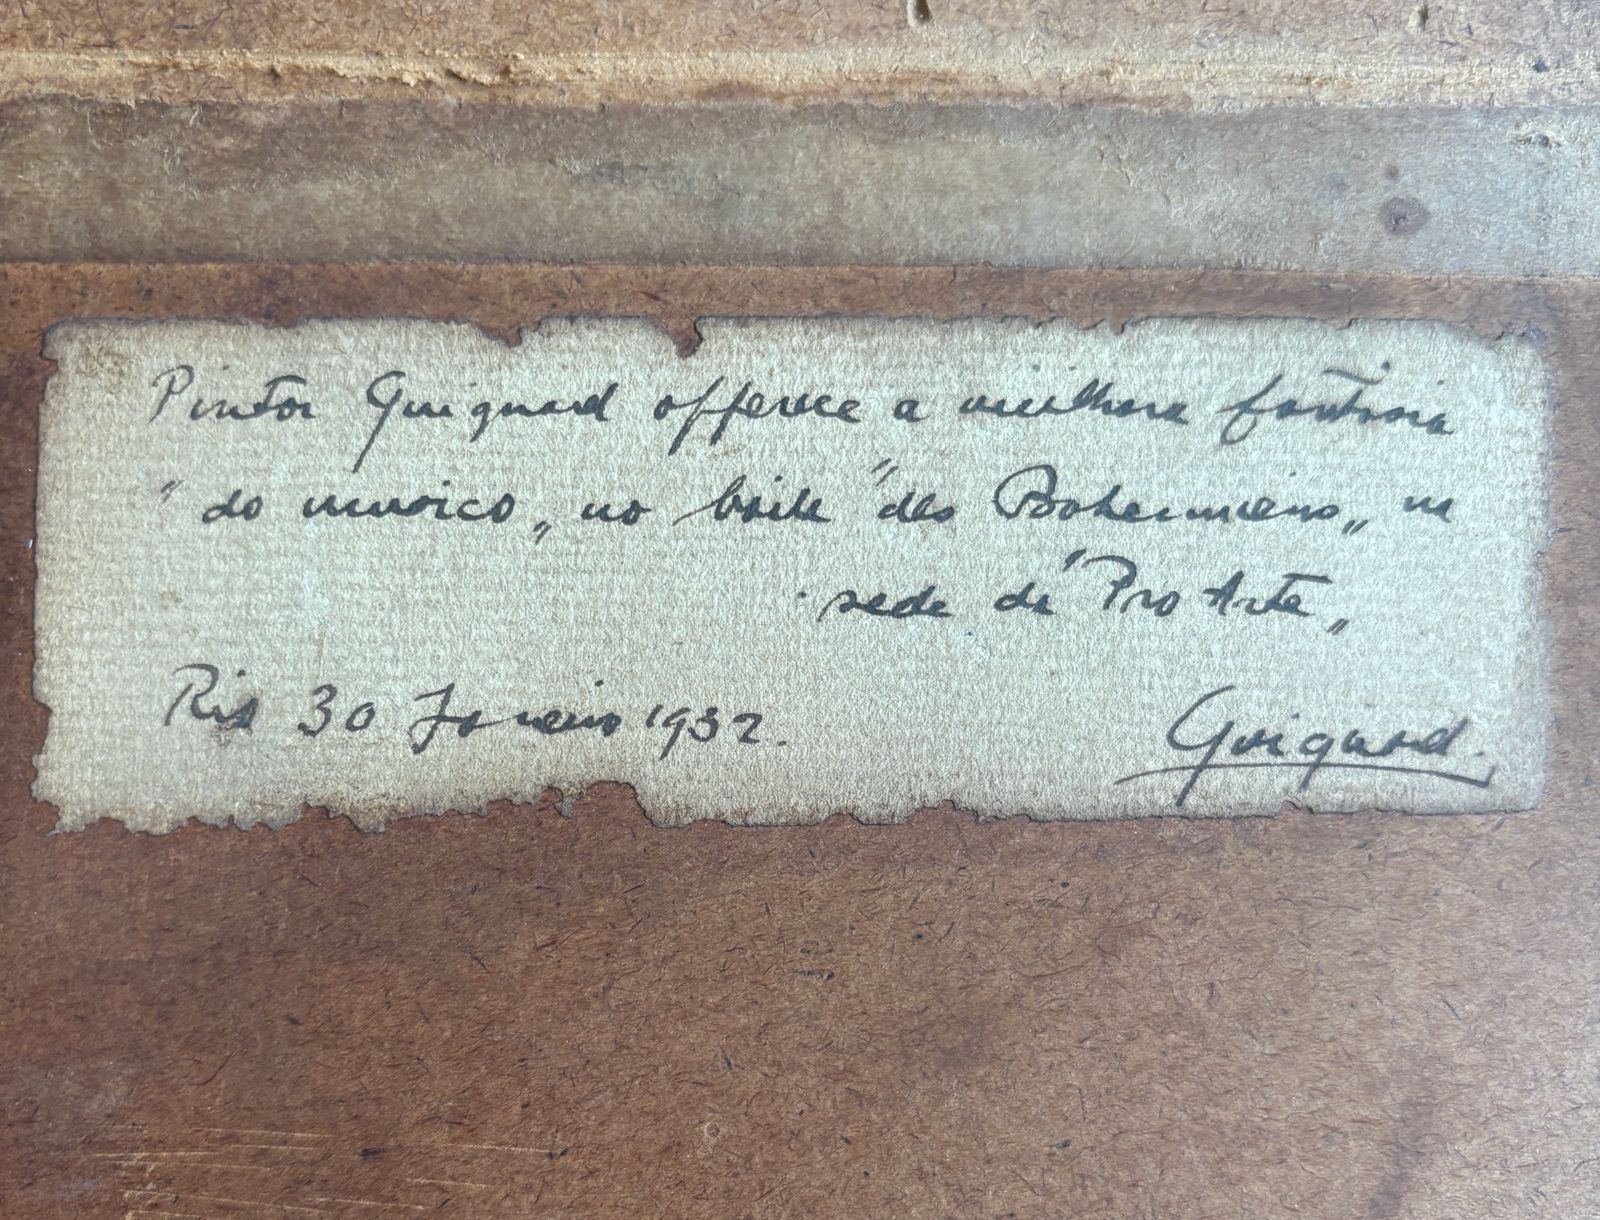 Pintor Guignard offerece a melhora fantasia
"do musico„ no boite "des Bohemiens„ na
sede da "Pro Arte„
Rio 30 Janeiro 1932.
Guignard.